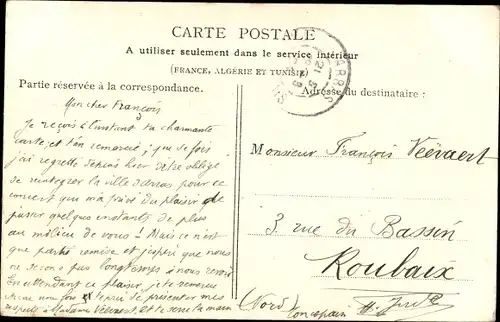 CARTE POSTALE
A utiliser seulement dans le service intérieur
(FRANCE, ALGÉRIE ET TUNISIE)
Partie réservée à la correspondance.
Adresse du destinataire :
ARRAS
21
Mon cher François
Je reçois à l'instant ta charmante
carte, et t'en remercie ; 
j'ai regretté hier d'être obligé
de réintégrer la ville d'Arras pour ce
concert qui m'a privé du plaisir de
passer quelques instants de plus
au milieu de vous. Mais ce n'est
que partie remise et j'espère que nous
ne serons pas longtemps à nous revoir
En attendant ce plaisir, je te remercie
une fois de présenter mes
respects à Madame Véevaert, et te serre la main
Monsieur François Véevaert
3 rue du Bassin
Roubaix
(Nord)
ton copain